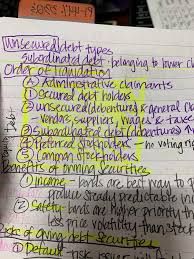 Unsecured debt types
Subordinated debt - belonging to lower cl
Order of liquidation
① Administrative claimants
② Secured debt holders
③ unsecured (debentures) & general cl
vendors, suppliers, wages & taxes
Subordinated debt (debentures)
④ Preferred stockholders - no voting
⑤ Common stockholders
Benefits of owning securities
① Income - bonds are best way to
produce steady predictable in
② Safety - bonds are higher priority
less price volatility than stock
of owning debt securities
① Default - risk issuer will